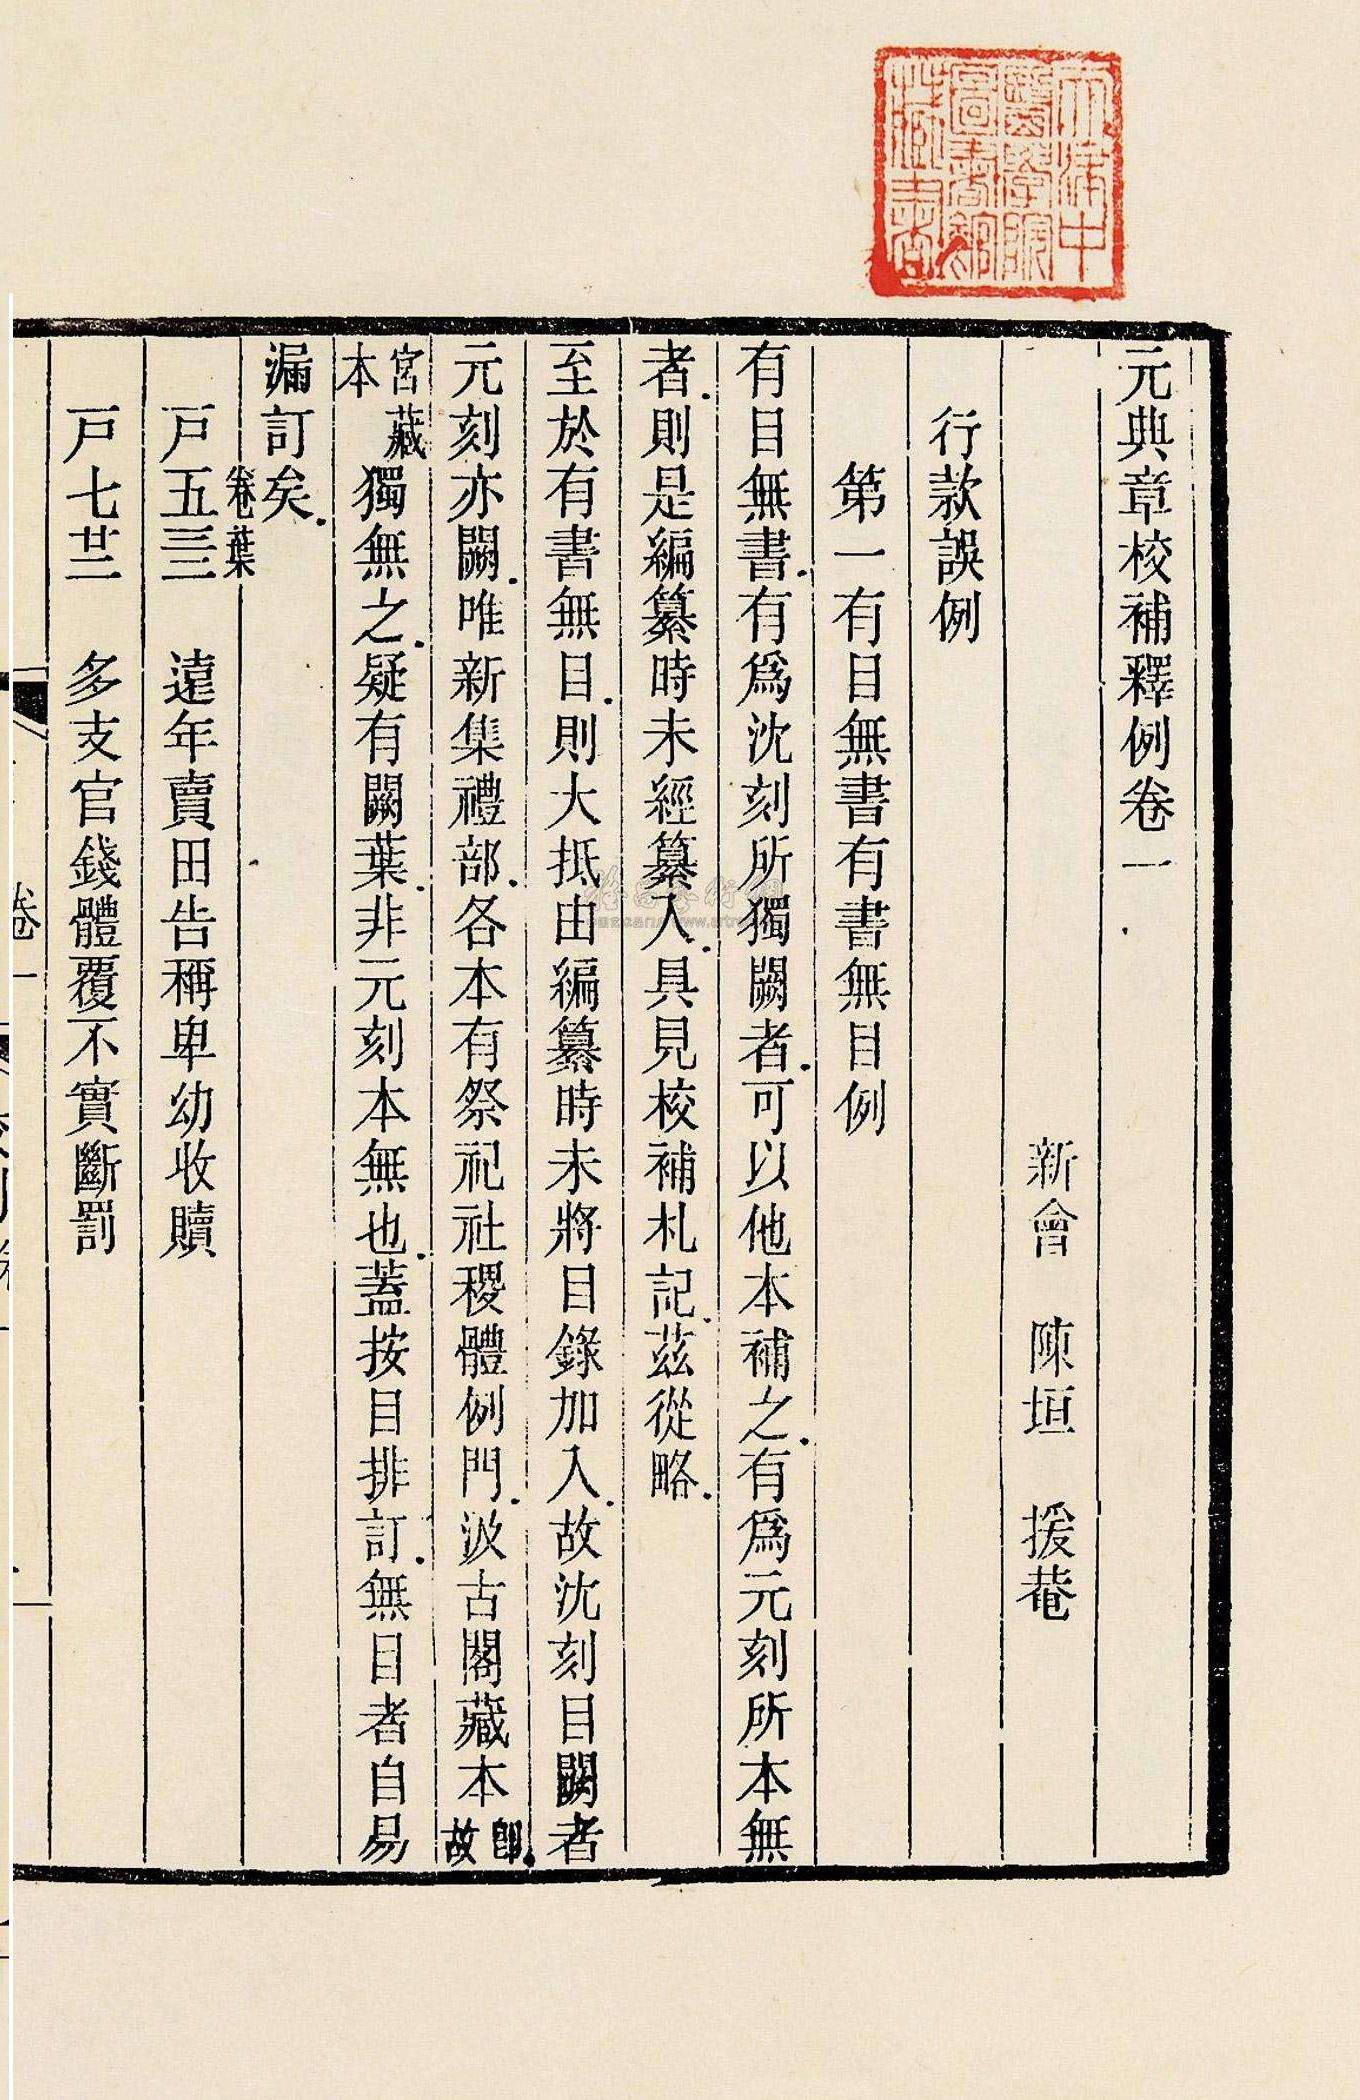 元典章校補釋例卷一
新會 陳垣 援菴
行款誤例
第一有目無書有書無目例
有目無書.有爲沈刻所獨闕者.可以他本補之.有爲元刻所本無
者.則是編纂時未經纂入.具見校補札記.茲從略.
至於有書無目.則大抵由編纂時未將目錄加入.故沈刻目闕者
元刻亦闕.唯新集禮部.各本有祭祀社稷體例門.汲古閣藏本.卽故
宮藏本獨無之.疑有闕葉.非元刻本無也.蓋按目排訂.無目者自易
漏訂矣.
卷葉
戸五三三 遠年賣田告稱卑幼收贖
戸七廿二 多支官錢體覆不實斷罰
卷一